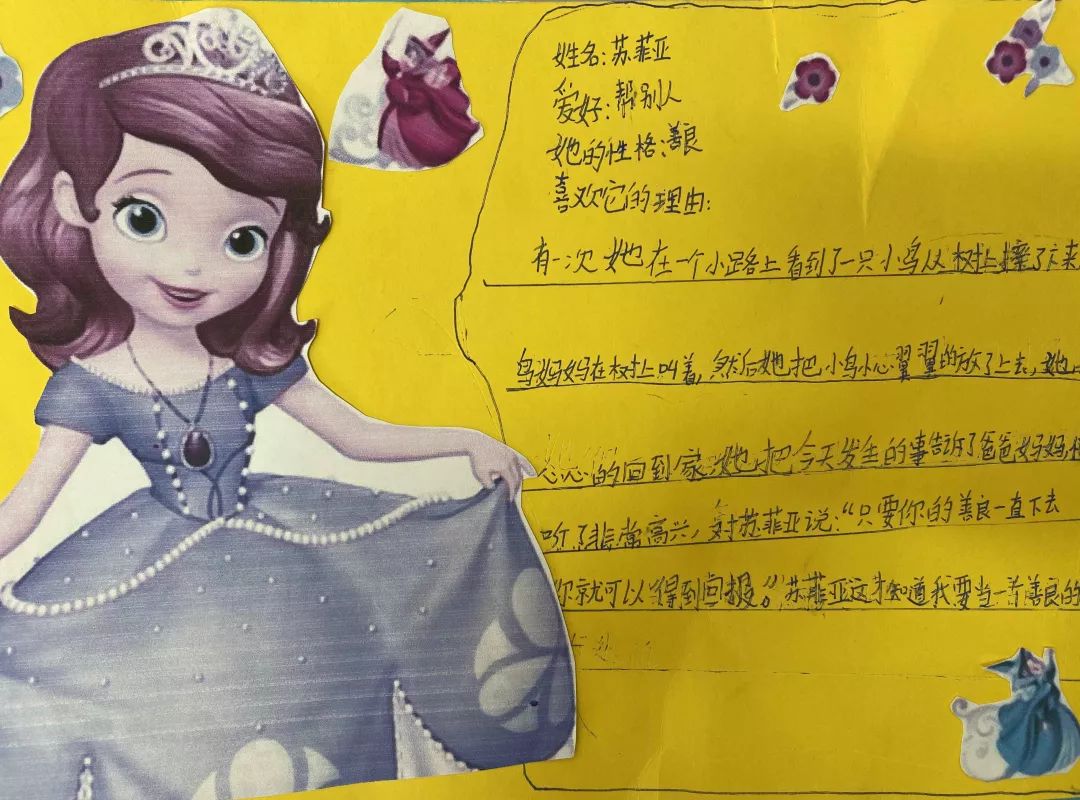 姓名：苏菲亚
爱好：帮别人
她的性格：善良
喜欢它的理由：
有一次她在一个小路上看到了一只小鸟从树上摔了下来
鸟妈妈在树上叫着，然后她把小鸟小心翼翼的放了上去，她
心心的回到家，她把今天发生的事告诉了爸爸妈妈
听了非常高兴，对苏菲亚说：“只要你的善良一直下去
你就可以得到回报。”苏菲亚这才知道我要当一善良的